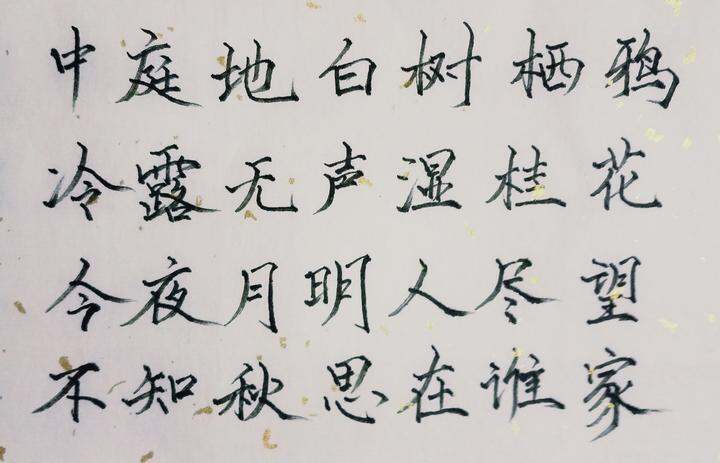 中庭地白树栖鸦
冷露无声湿桂花
今夜月明人尽望
不知秋思在谁家